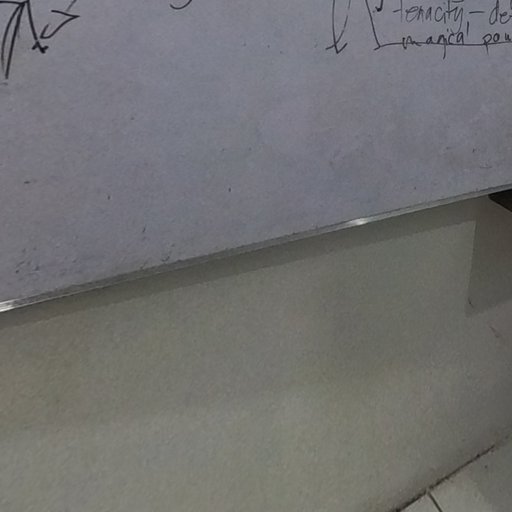 tenacity - de
magical pow